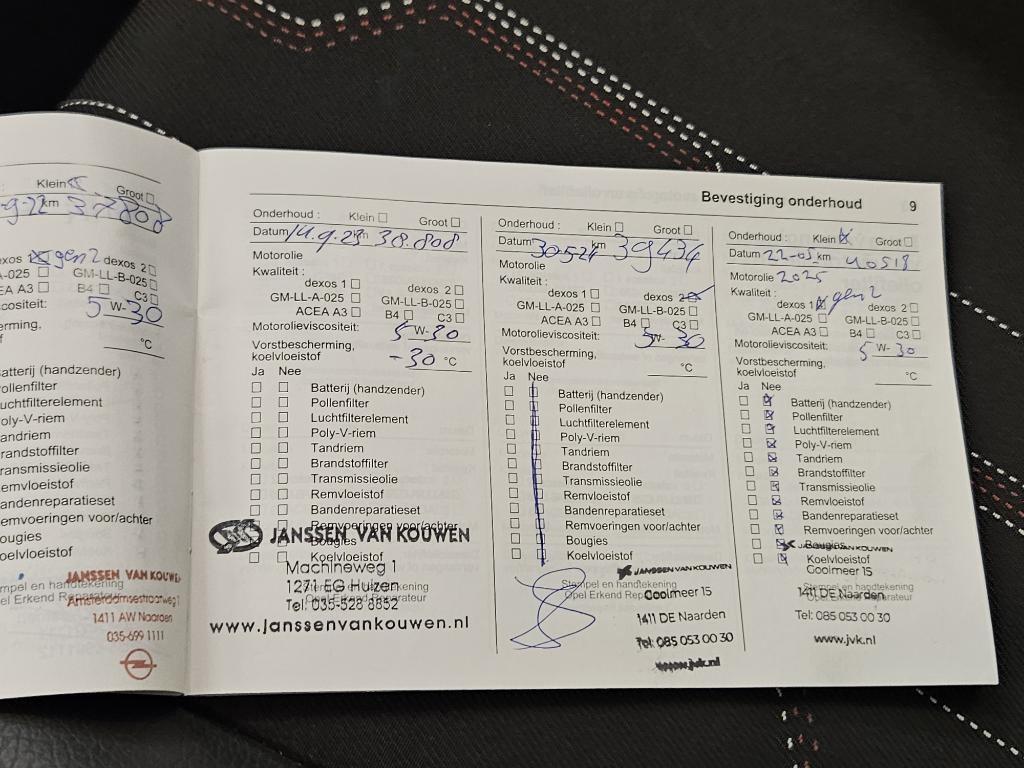 Klein Groot
-9-22 km 37808
dexos 1 gen2 dexos 2
-A-025 GM-LL-B-025
CEA A3 B4 C3
scositeit: 5 W-30
herming,
°C
atterij (handzender)
ollenfilter
uchtfilterelement
oly-V-riem
andriem
randstoffilter
ransmissieolie
emvloeistof
andenreparatieset
emvoeringen voor/achter
ougies
oelvloeistof
mpel en handtekening
el Erkend Reparateur
JANSSEN VAN KOUWE
Amsterdamsestraatweg 1
1411 AW Naarden
035-699 1111
Bevestiging onderhoud 9
Onderhoud : Klein Groot
Datum 14.9.23 km 38.808
Motorolie
Kwaliteit :
dexos 1 dexos 2
GM-LL-A-025 GM-LL-B-025
ACEA A3 B4 C3
Motorolieviscositeit: 5 W- 30
Vorstbescherming,
koelvloeistof -30 °C
Ja Nee
Batterij (handzender)
Pollenfilter
Luchtfilterelement
Poly-V-riem
Tandriem
Brandstoffilter
Transmissieolie
Remvloeistof
Bandenreparatieset
Remvoeringen voor/achter
Bougies
Koelvloeistof
Stempel en handtekening
Opel Erkend Reparateur
JANSSEN VAN KOUWEN
Machineweg 1
1271 EG Huizen
Tel: 035-528 8852
www.janssenvankouwen.nl
Onderhoud : Klein Groot
Datum 30-5-24 km 39434
Motorolie
Kwaliteit :
dexos 1 dexos 2
GM-LL-A-025 GM-LL-B-025
ACEA A3 B4 C3
Motorolieviscositeit: 5 W- 30
Vorstbescherming,
koelvloeistof °C
Ja Nee
Batterij (handzender)
Pollenfilter
Luchtfilterelement
Poly-V-riem
Tandriem
Brandstoffilter
Transmissieolie
Remvloeistof
Bandenreparatieset
Remvoeringen voor/achter
Bougies
Koelvloeistof
Stempel en handtekening
Opel Erkend Reparateur
JANSSEN VAN KOUWEN
Coolmeer 15
1411 DE Naarden
Tel: 085 053 00 30
www.jvk.nl
Onderhoud : Klein Groot
Datum 22-05 km 40518
Motorolie 2025
Kwaliteit :
dexos 1 gen2 dexos 2
GM-LL-A-025 GM-LL-B-025
ACEA A3 B4 C3
Motorolieviscositeit: 5 W- 30
Vorstbescherming,
koelvloeistof °C
Ja Nee
Batterij (handzender)
Pollenfilter
Luchtfilterelement
Poly-V-riem
Tandriem
Brandstoffilter
Transmissieolie
Remvloeistof
Bandenreparatieset
Remvoeringen voor/achter
Bougies
Koelvloeistof
Stempel en handtekening
Opel Erkend Reparateur
JANSSEN VAN KOUWEN
Coolmeer 15
1411 DE Naarden
Tel: 085 053 00 30
www.jvk.nl